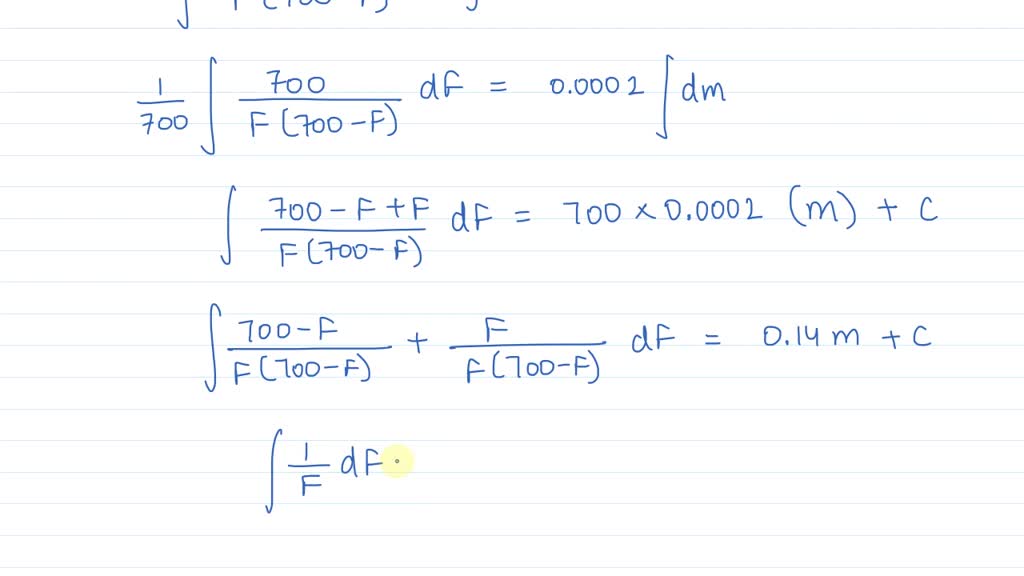 ∫ 1/700 ∫ 700/(F(700-F)) dF = 0.0002 ∫ dm
∫ (700-F+F)/(F(700-F)) dF = 700 × 0.0002 (m) + C
∫ (700-F)/(F(700-F)) + F/(F(700-F)) dF = 0.14m + C
∫ 1/F dF